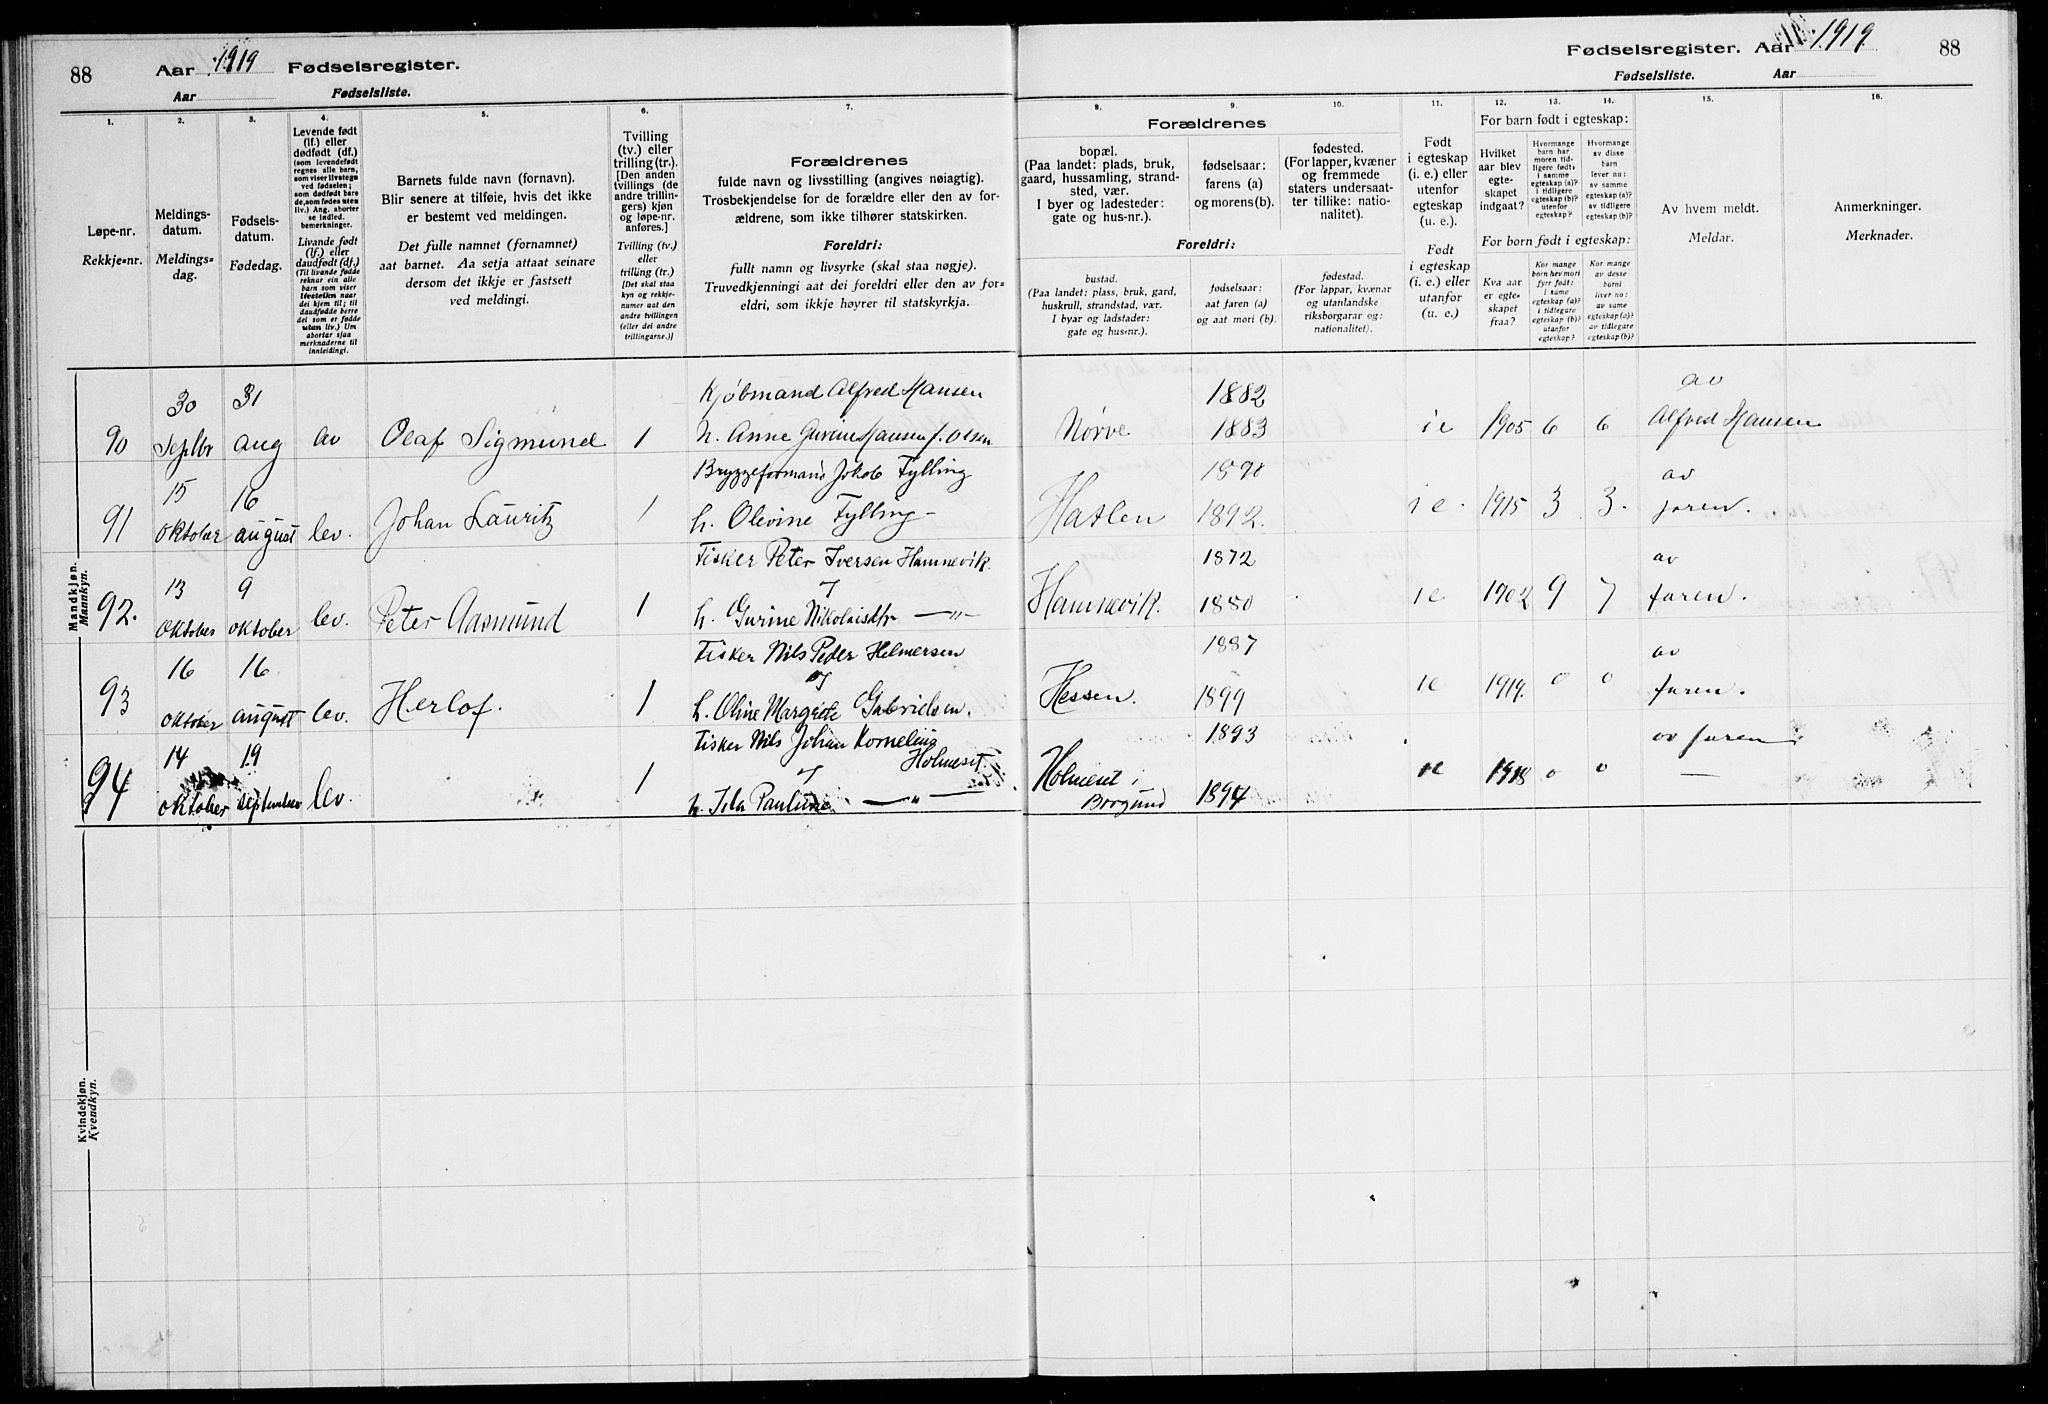 88 Aar 1919 Fødselsregister.
Aar Fødselsliste.
Fødselsregister. Aar 1919. 88
Fødselsliste. Aar
1. 2. 3. 4. 5. 6. 7. 8. 9. 10. 11. 12. 13. 14. 15. 16.
Løpe-nr.
Rekkje-nr.
Meldings-
datum.
Meldings-
dag.
Fødsels-
datum.
Fødedag.
Levende født
(lf.) eller
dødfødt (df.)
(som levendefødt
regnes alle barn,
som viser livstegn
ved fødselen;
som dødfødt bare
de, som fødes uten
liv.) Ang. aborter
se indled.
bemerkninger.
Livande født
(lf.) eller
daudfødt (df.)
(Til livande fødde
reknar ein alle
barn som viser
livsteikn naar
dei kjem til; til
daudfødde berre
dei som er fødde
utan liv.) Um
abortar sjaa
merknaderne til
innleidingi.
Barnets fulde navn (fornavn).
Blir senere at tilføie, hvis det ikke
er bestemt ved meldingen.
Det fulle namnet (fornamnet)
aat barnet. Aa setja attaat seinare
dersom det ikkje er fastsett
ved meldingi.
Tvilling
(tv.) eller
trilling (tr.).
[Den anden
tvillings (de
andre trillin-
gers) kjøn
og løpe-nr.
anføres.]
Tvilling (tv.)
eller
trilling (tr.)
[Det skal staa
kyn og rekkje-
numer aat den
andre tvillingen
(eller dei andre
trillingarne.)]
Forældrenes
fulde navn og livsstilling (angives nøiagtig).
Trosbekjendelse for de forældre eller den av for-
ældrene, som ikke tilhører statskirken.
Foreldri:
fullt namn og livsyrke (skal staa nøgje).
Truvedkjenningi aat dei foreldri eller den av for-
eldri, som ikkje høyrer til statskyrkja.
Forældrenes
bopæl.
(Paa landet: plads, bruk,
gaard, hussamling, strand-
sted, vær.
I byer og ladesteder:
gate og hus-nr.).
fødselsaar:
farens (a)
og morens (b).
fødested.
(For lapper, kvæner
og fremmede
staters undersaat-
ter tillike: natio-
nalitet).
Foreldri:
bustad.
(Paa landet: plass, bruk, gard,
huskrull, strandstad, vær.
I byar og ladstader:
gate og hus-nr.).
fødselsaar:
aat faren (a)
og aat mori (b).
fødestad.
(For lappar, kvænar
og utanlandske
riksborgarar og:
nationalitet).
Født
i egteskap
(i. e.) eller
utenfor
egteskap
(u. e.).
Født
i egteskap
(i. e.) eller
utanfor
(u. e.)
For barn født i egteskap:
Hvilket
aar blev
egte-
skapet
indgaat?
Hvormange
barn har
moren tid-
ligere født,
i samme
egteskap (a)?
i tidligere
egteskap (b)?
utenfor
egteskap?
Hvormange
av disse
barn
lever nu:
av samme
egteskap (a)?
av tidligere
egteskap (b)?
For born født i egteskap:
Kva aar
er egte-
skapet
fraa?
Kor mange
born hev mori
fyrr født:
i same
egteskap (a)?
i tidlegare
egteskap (b)?
utanfor
egteskap?
Kor mange
av desse
borni
liver no:
av same
egteskap (a)?
av tidlegare
egteskap (b)?
Av hvem meldt.
Meldar.
Anmerkninger.
Merknader.
Mandkjøn.
Mannkyn.
30 31 Kjøbmand Alfred Hansen 1882 av
90 Septbr aug av Olaf Sigmund 1 h. Anne Gurine Hansen f. Olsen Nørve 1883 i e 1905 6 6 Alfred Hansen
15 16 Bryggeformand Jokob Fylling 1890 av
91 oktober august lev. Johan Lauritz 1 h. Olevine Fylling Hatlen 1892. i e. 1915 3 3. faren.
13 9 Fisker Peter Iversen Hamnevik. 1872 av
92. oktober oktober lev. Peter Aasmund 1 h. Gurine Nikolaisdtr —„— Hamnevik. 1880 i e 1902 9 7 faren.
16 16 Fisker Nils Peder Helmersen 1887 av
93 oktober august lev. Herlof. 1 h. Oline Margrete Gabrielsen. Hessen. 1899 i e 1919. 0 0 faren.
14 19 Fisker Nils Johan Kornelius Holmeset 1893 av faren
94 oktober september lev. 1 h. Ida Pauline —„— Holmeset i Borgund 1894 i e 1918 0 0 —
Kvindekjøn.
Kvendkyn.